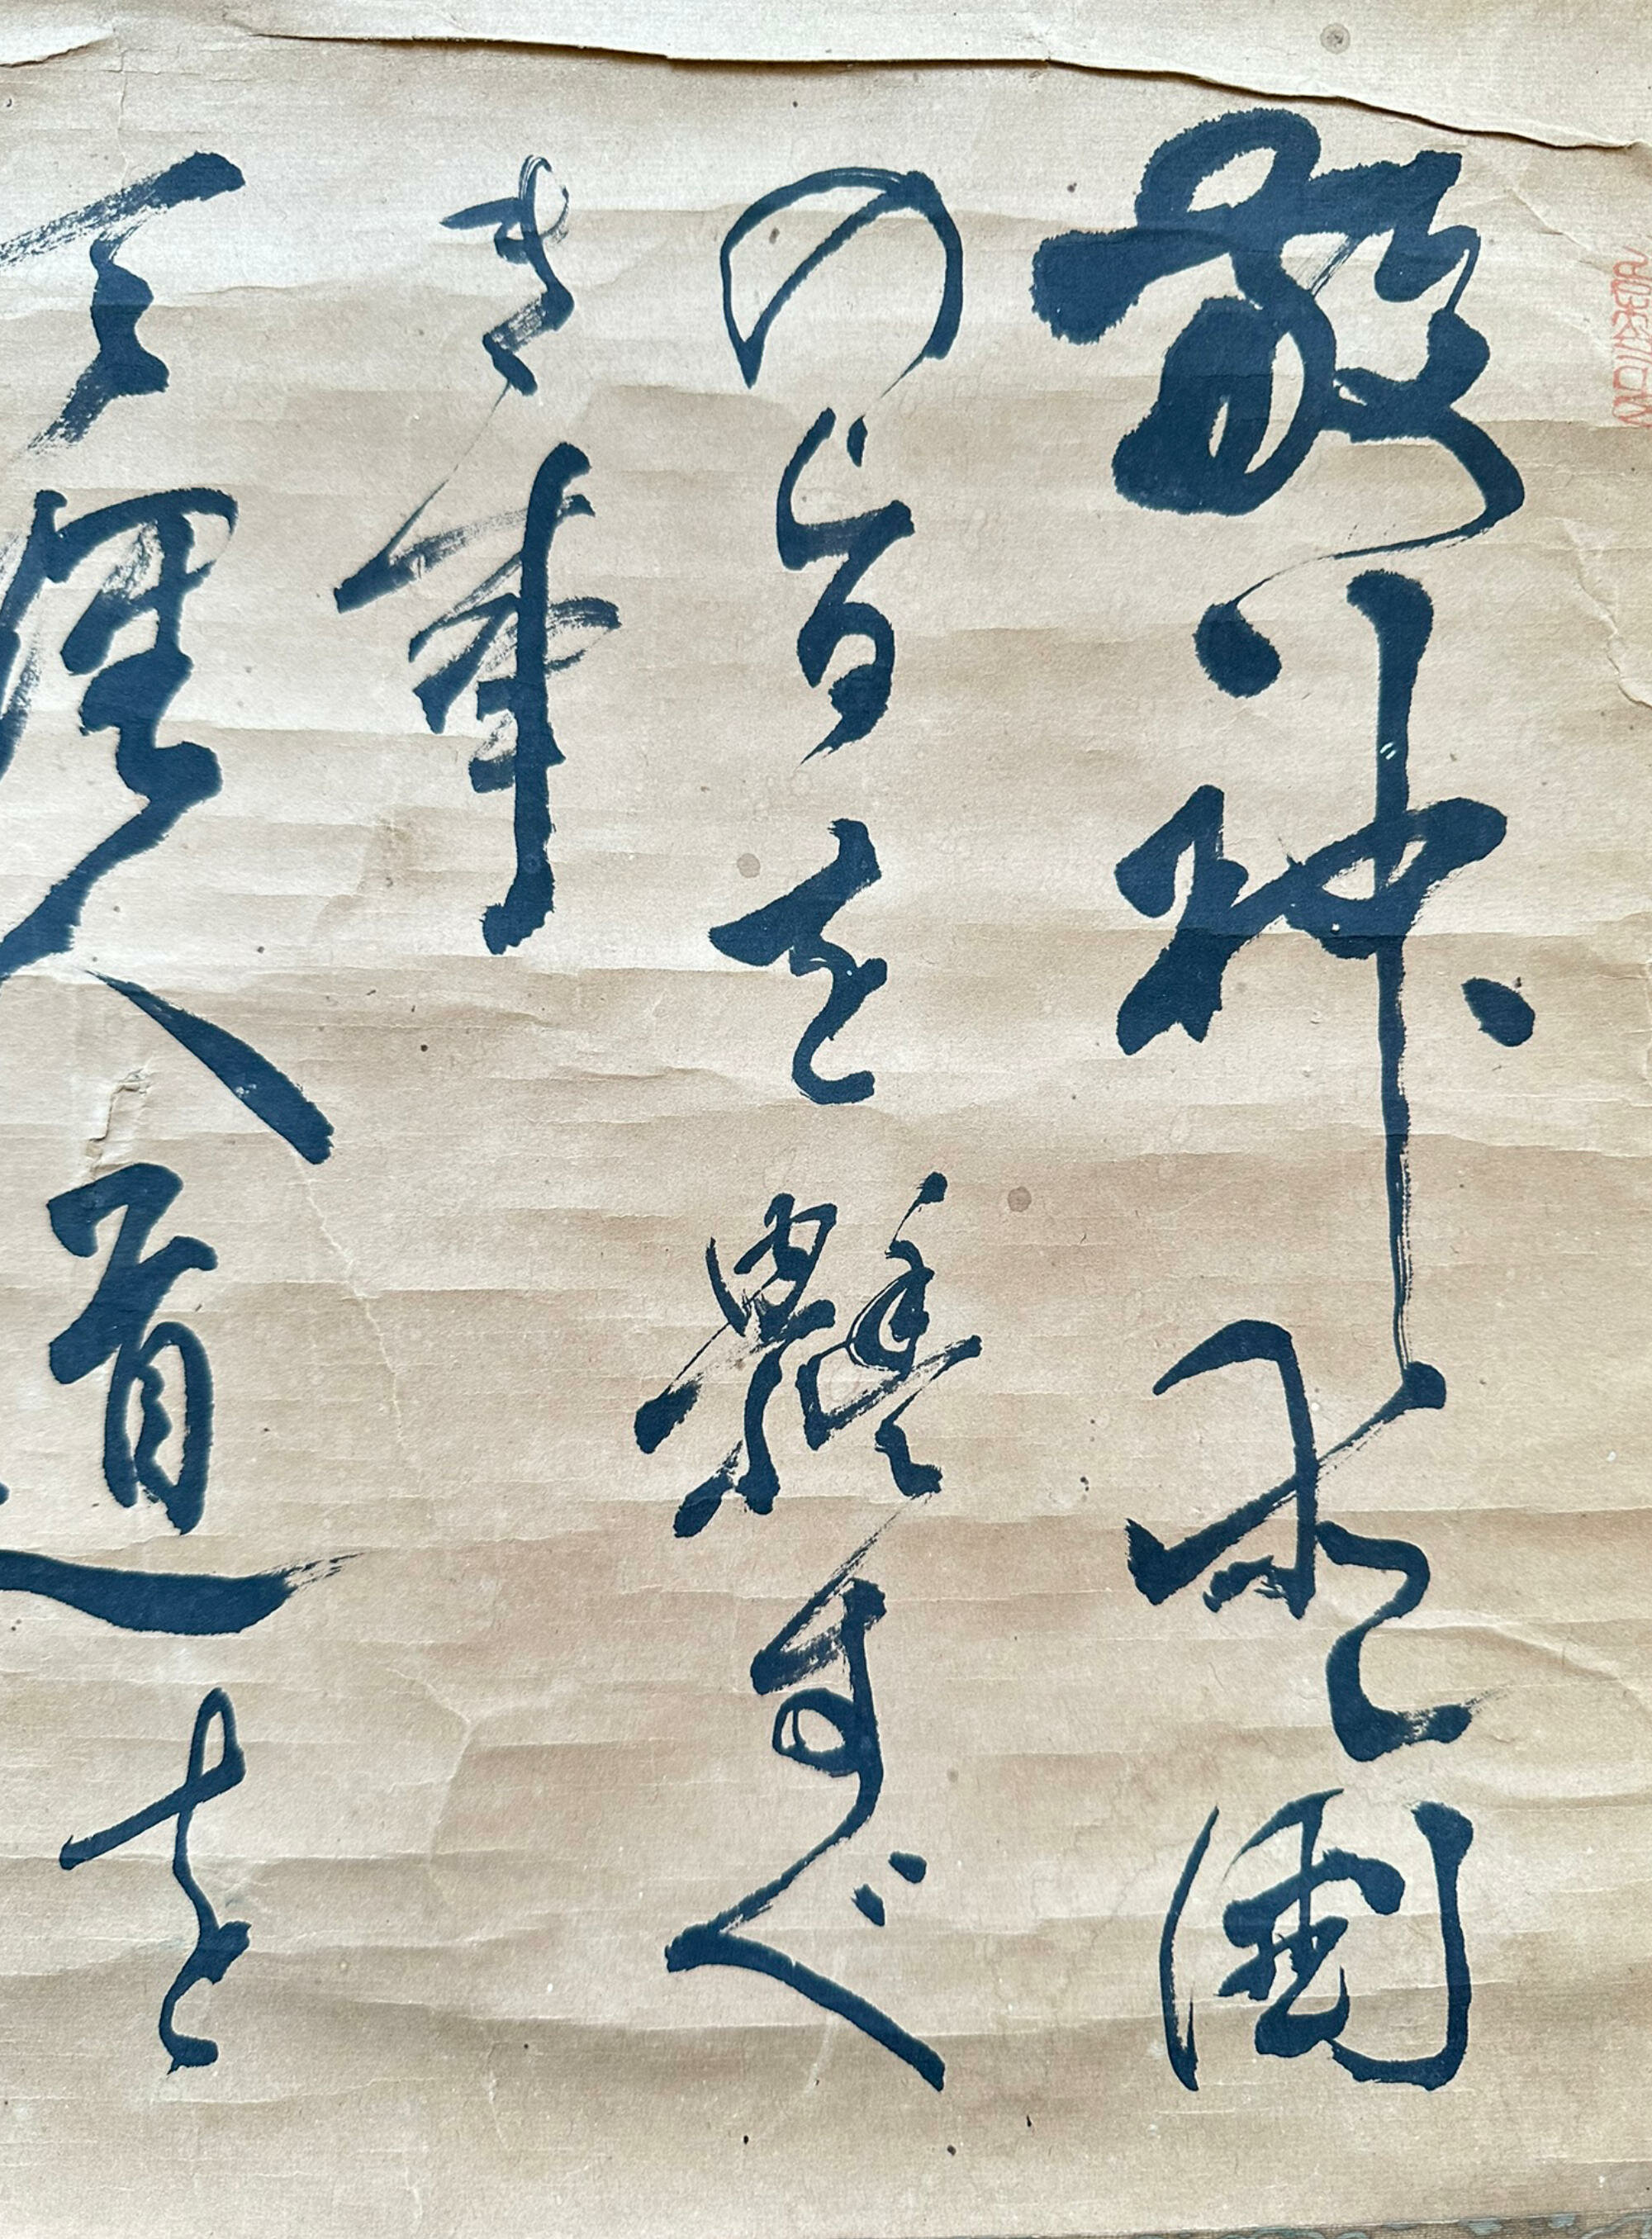 敬神愛國
の旨を體すべ
き事
天理人道を